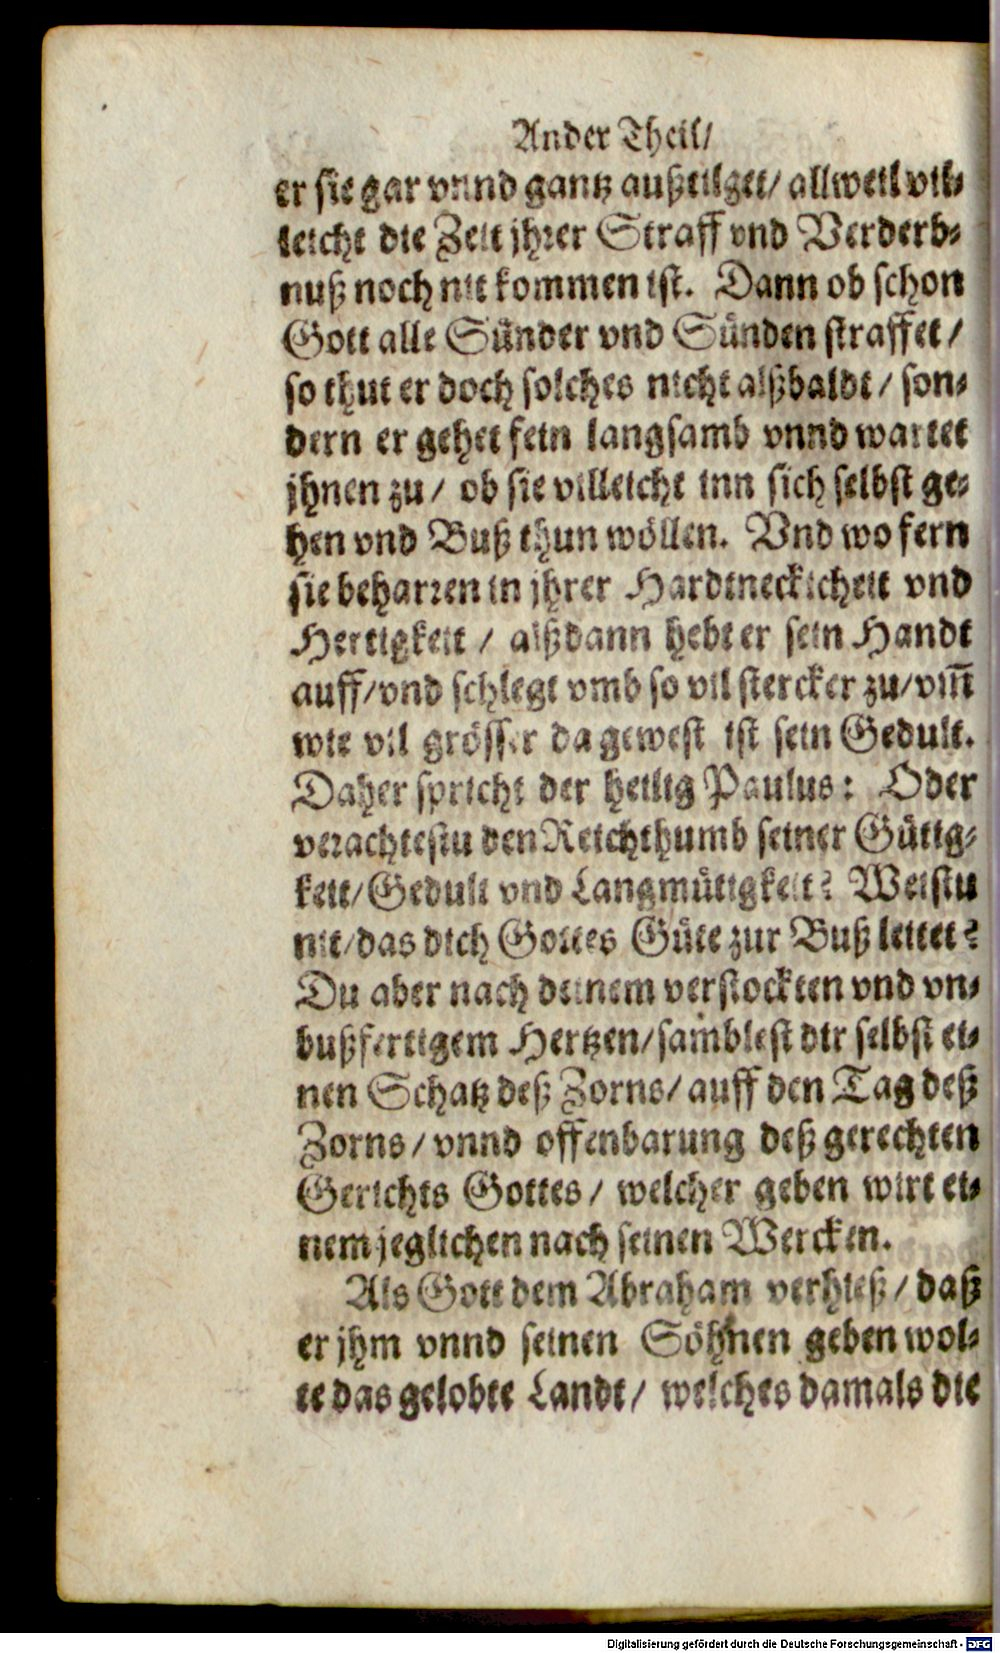 Ander Theil/
er sie gar vnnd gantz außtilget/ allweil vil-
leicht die Zeit jhrer Straff vnd Verderb-
nuß noch nit kommen ist. Dann ob schon
Gott alle Sünder vnd Sünden straffet/
so thut er doch solches nicht alßbaldt/ son-
dern er gehet fein langsamb vnnd wartet
jhnen zu/ ob sie villeicht inn sich selbst ge-
hen vnd Buß thun wöllen. Vnd wo fern
sie beharren in jhrer Hardtneckicheit vnd
Hertigkeit / alßdann hebt er sein Handt
auff/vnd schlegt vmb so vil stercker zu/vm̄
wie vil grösser da gewest ist sein Gedult.
Daher spricht der heilig Paulus: Oder
verachtestu den Reichthumb seiner Gütig-
keit/Gedult vnd Langmütigkeit? Weistu
nit/das dich Gottes Güte zur Buß leitet?
Du aber nach deinem verstockten vnd vn-
bußfertigem Hertzen/samblest dir selbst ei-
nen Schatz deß Zorns/ auff den Tag deß
Zorns/ vnnd offenbarung deß gerechten
Gerichts Gottes/ welcher geben wirt ei-
nem jeglichen nach seinen Wercken.
Als Gott dem Abraham verhieß/ daß
er jhm vnnd seinen Söhnen geben wol-
te das gelobte Landt/ welches damals die
Digitalisierung gefördert durch die Deutsche Forschungsgemeinschaft - DFG